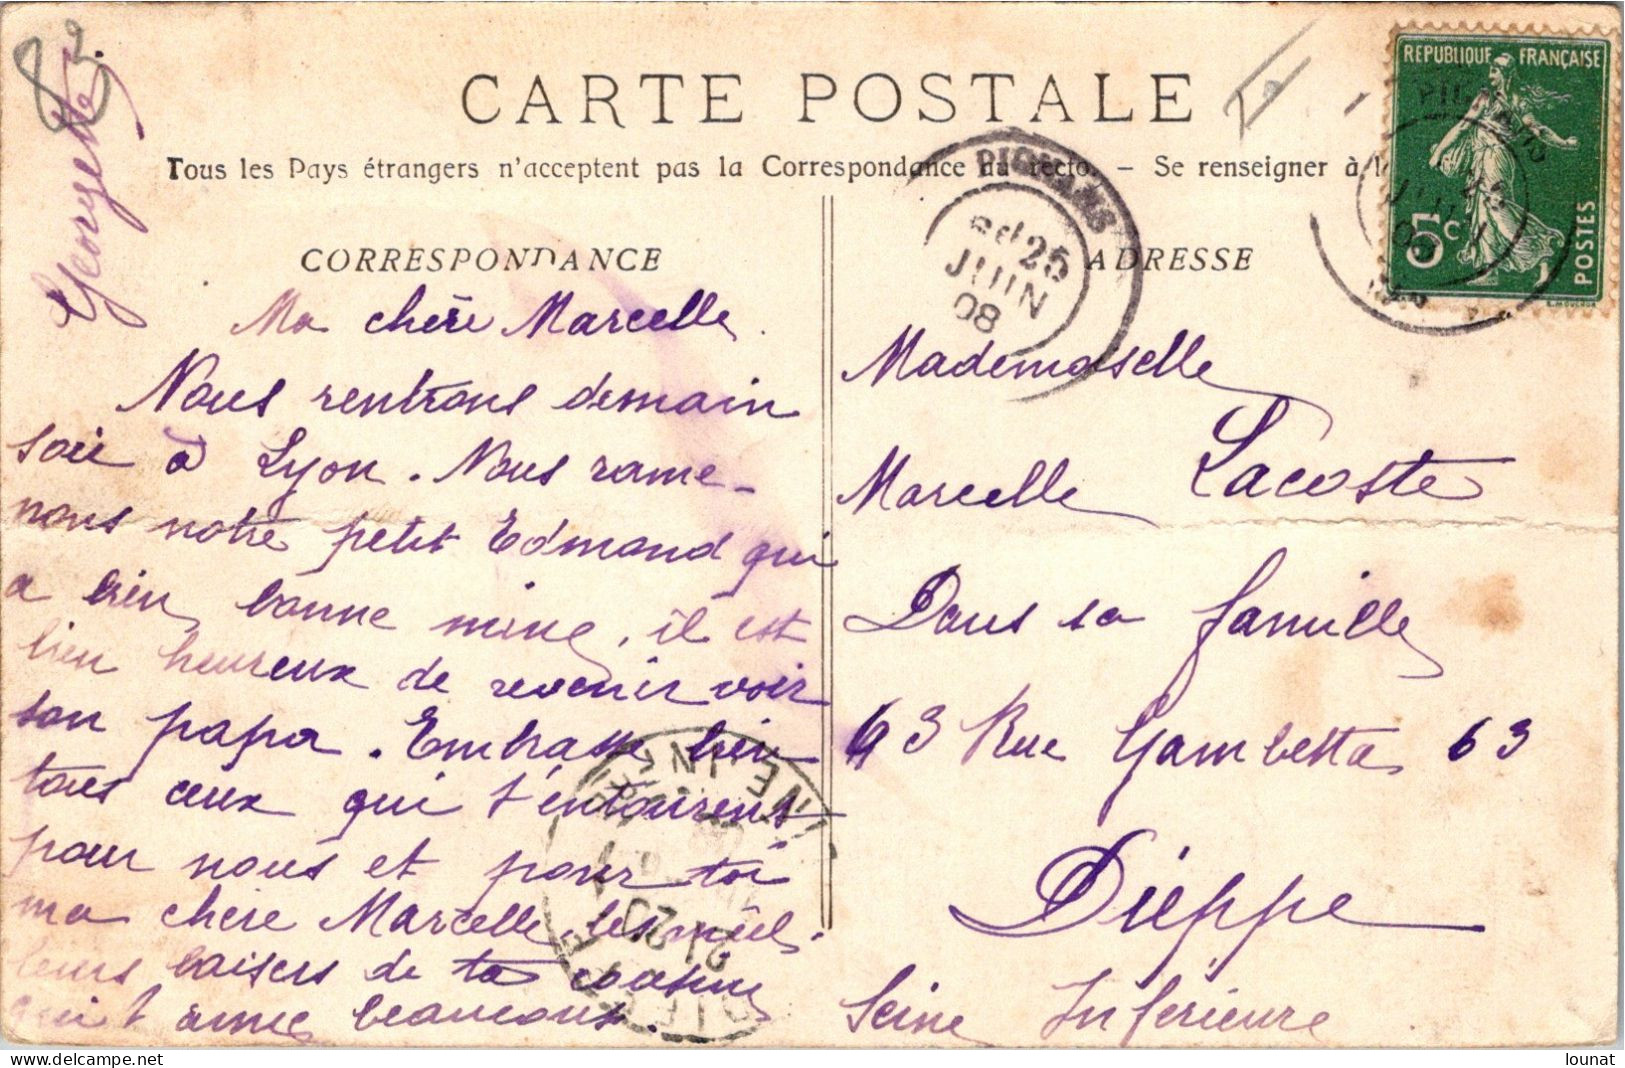 82.
Georgette
CARTE POSTALE
Tous les Pays étrangers n'acceptent pas la Correspondance au recto. – Se renseigner à la
CORRESPONDANCE
ADRESSE
PIGNANS
25
JUIN
08
REPUBLIQUE FRANÇAISE
5c
POSTES
Ma chère Marcelle.
Nous rentrons demain
soir à Lyon. Nous rame-
nons notre petit Edmond qui
a bien bonne mine, il est
bien heureux de revenir voir
son papa. Embrasse bien
tous ceux qui t'entourent
pour nous et pour toi
ma chère Marcelle, les meil-
leurs baisers de ta cousine
qui t'aime beaucoup.
Mademoiselle
Marcelle Lacoste
Dans sa famille
63 Rue Gambetta 63
Dieppe
Seine Inférieure
lounat